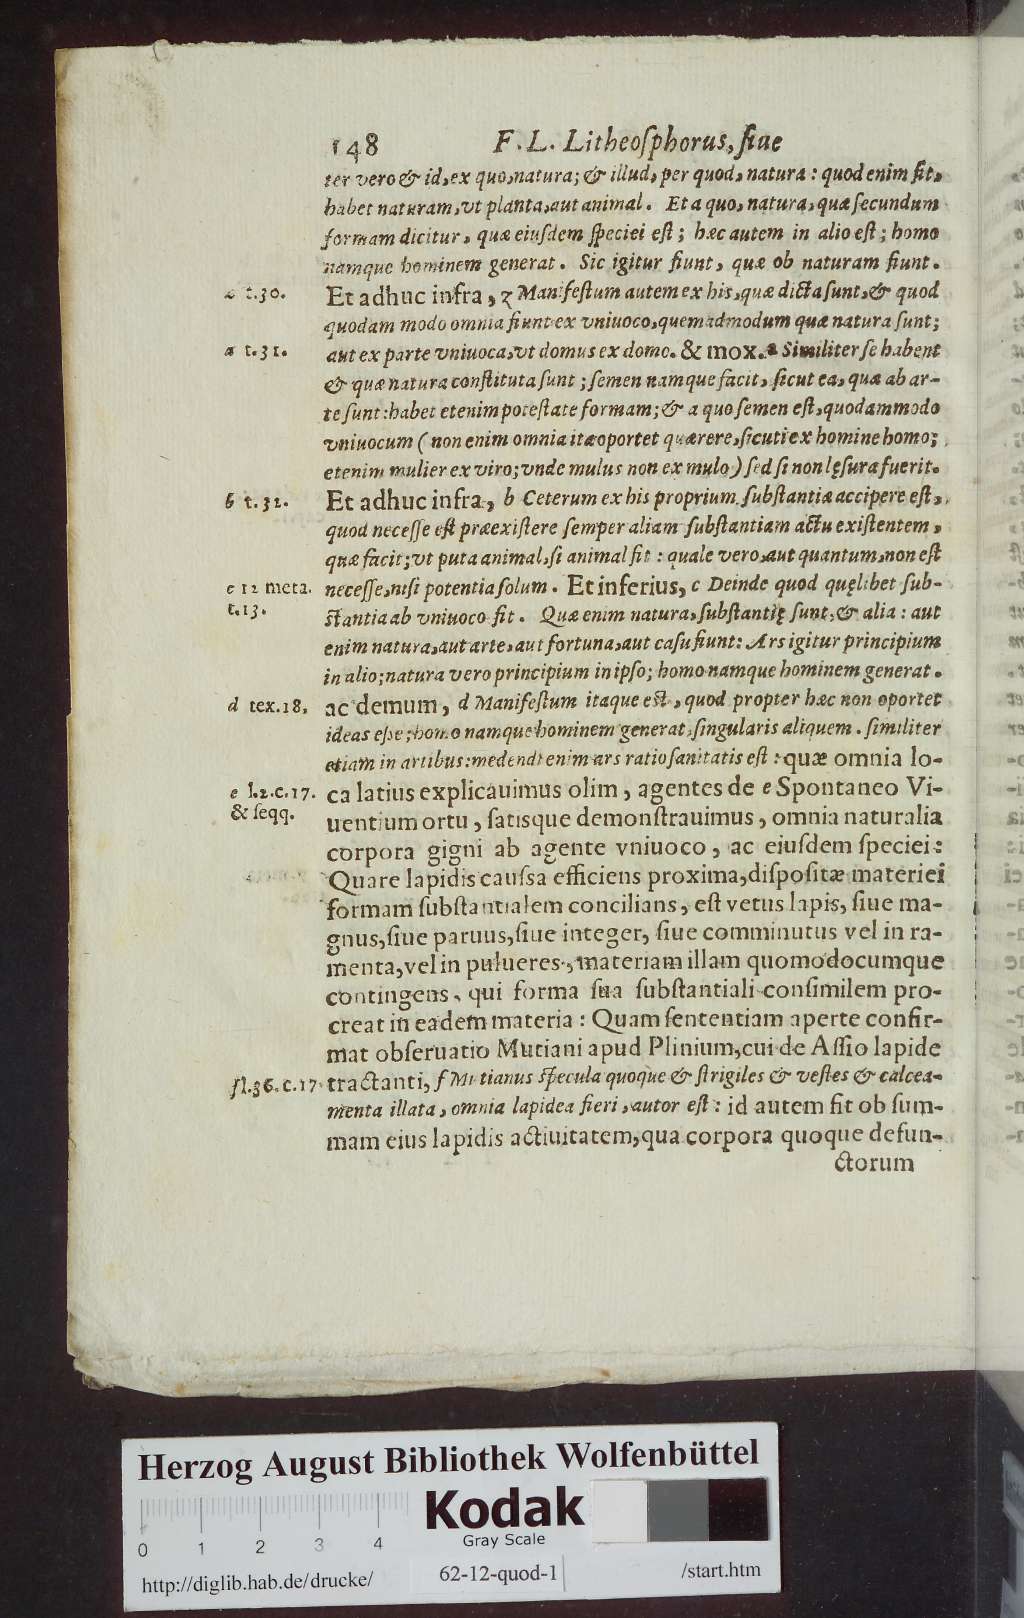 148 F. L. Litheoſphorus, ſiue
ter vero & id, ex quo, natura; & illud, per quod, natura : quod enim fit,
habet naturam, vt planta, aut animal. Et a quo, natura, quæ ſecundum
formam dicitur, quæ eiuſdem ſpeciei eſt; hæc autem in alio eſt; homo
namque hominem generat. Sic igitur fiunt, quæ ob naturam fiunt.
z t.30. Et adhuc infra, z Manifeſtum autem ex his, quæ dicta ſunt, & quod
quodam modo omnia fiunt ex vniuoco, quemadmodum quæ natura ſunt;
a t.31. aut ex parte vniuoca, vt domus ex domo. & mox. a Similiter ſe habent
& quæ natura conſtituta ſunt ; ſemen namque facit, ſicut ea, quæ ab ar-
te ſunt: habet etenim poteſtate formam; & a quo ſemen eſt, quodammodo
vniuocum ( non enim omnia ita oportet quærere, ſicuti ex homine homo;
etenim mulier ex viro; vnde mulus non ex mulo ) ſed ſi non lęſura fuerit.
b t.32. Et adhuc infra, b Ceterum ex his proprium ſubſtantiæ accipere eſt,
quod neceſſe eſt præexiſtere ſemper aliam ſubſtantiam actu exiſtentem,
quæ facit; vt puta animal, ſi animal fit : quale vero, aut quantum, non eſt
c 12 meta. neceſſe, niſi potentia ſolum. Et inferius, c Deinde quod quęlibet ſub-
t.13. ſtantia ab vniuoco fit. Quæ enim natura, ſubſtantię ſunt, & alia : aut
enim natura, aut arte, aut fortuna, aut caſu fiunt: Ars igitur principium
in alio; natura vero principium in ipſo; homo namque hominem generat.
d tex.18. ac demum, d Manifeſtum itaque eſt, quod propter hæc non oportet
ideas eſſe; homo namque hominem generat, ſingularis aliquem. ſimiliter
etiam in artibus: medendi enim ars ratio ſanitatis eſt : quæ omnia lo-
e l.2.c.17. ca latius explicauimus olim, agentes de e Spontaneo Vi-
& ſeqq. uentium ortu, ſatisque demonſtrauimus, omnia naturalia
corpora gigni ab agente vniuoco, ac eiuſdem ſpeciei:
Quare lapidis cauſsa efficiens proxima, diſpoſitæ materiei
formam ſubſtantialem concilians, eſt vetus lapis, ſiue ma-
gnus, ſiue paruus, ſiue integer, ſiue comminutus vel in ra-
menta, vel in pulueres, materiam illam quomodocumque
contingens, qui forma ſua ſubſtantiali conſimilem pro-
creat in eadem materia : Quam ſententiam aperte confir-
mat obſeruatio Mutiani apud Plinium, cui de Aſſio lapide
f l.36.c.17. tractanti, f Mutianus ſpecula quoque & ſtrigiles & veſtes & calcea-
menta illata, omnia lapidea fieri, autor eſt : id autem fit ob ſum-
mam eius lapidis actiuitatem, qua corpora quoque defun-
ctorum
Herzog August Bibliothek Wolfenbüttel
Kodak
Gray Scale
0 1 2 3 4
http://diglib.hab.de/drucke/ 62-12-quod-1 /start.htm